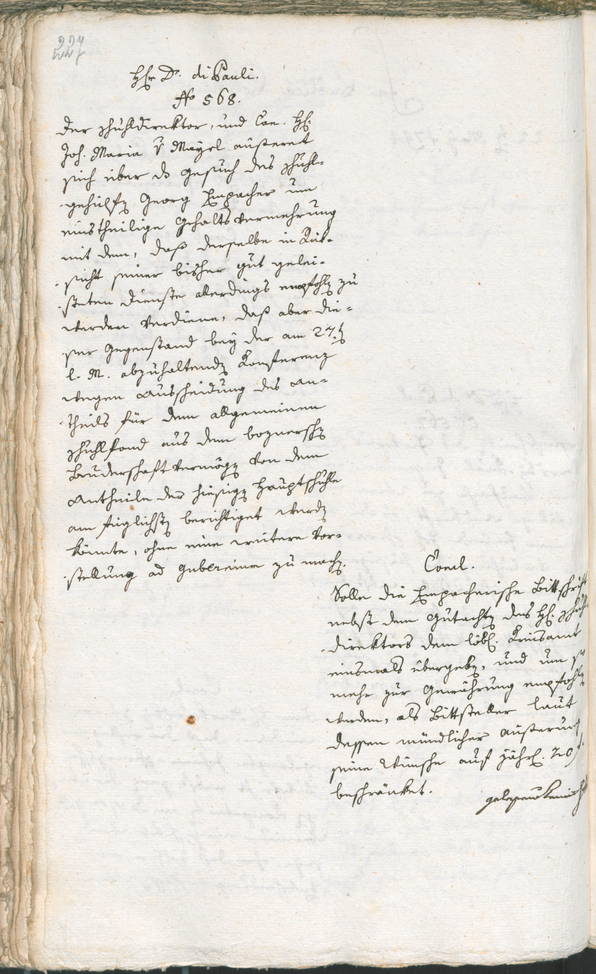 227
Hr. Dr. di Pauli.
No 568.
Der Schuldirektor, und Con. H.
Joh. Maria v Mayrl äusseret
sich über ds Gesuch des Schul-
gehülfen Georg Empacher um
einstheilige Gehaltsvermehrung
mit dem, daß derselbe in Rük-
sicht seiner bisher gut gelei-
steten Dienste allerdings empfohlen zu
werden verdiene, daß aber die-
ser Gegenstand bey der am 27.
l. M. abzuhaltenden Konferenz
wegen Ausscheidung des An-
theils für dem allgemeinen
Schulfond aus dem boznerschen
Bruderschaftvermögen von dem
Antheile der hiesigen Hauptschulle
am füglichsten berichtiget werden
könnte, ohne eine weitere Vor-
stellung ad gubernium zu machen.
Concl.
Solle die Empacherische Bittschrift
nebst dem Gutachten des H. Schul-
direktors dem löbl. Kreisamt
einsmals übergeben, und um so
mehr zur Gewährung empfohlen
werden, als Bittsteller laut
dessen mündlicher Äusserung
seine Wünsche auf jährl. 20 f.
beschränket.